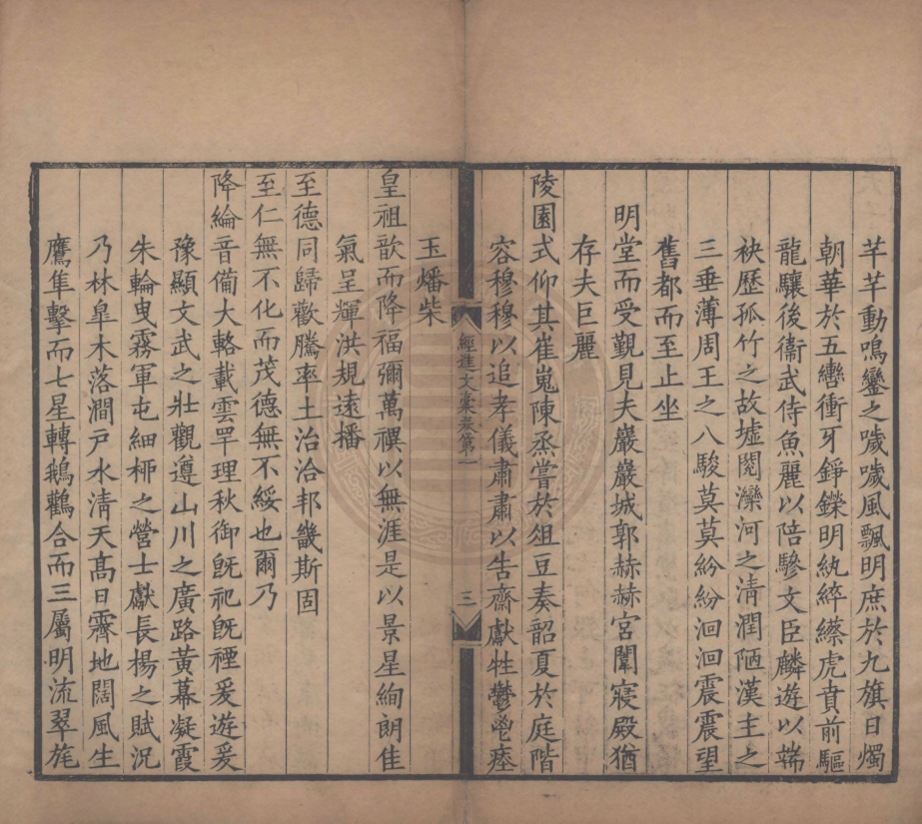 芊芊動鳴鑾之噦噦風飄明庶於九旗日燭
朝華於五轡衝牙錚鑅明紈綷縩虎賁前驅
龍驤後衞武侍魚麗以陪驂文臣麟遊以端
袂歷孤竹之故墟閱灤河之淸潤陋漢主之
三垂薄周王之八駿莫莫紛紛洄洄震震望
舊都而至止坐
明堂而受覲見夫巖巖城郭赫赫宮闈寢殿猶
存夫巨麗
陵園式仰其崔嵬陳烝嘗於俎豆奏韶夏於庭階
容穆穆以追孝儀肅肅以告齋獻牲鬱鬯瘞
經進文稾卷第一
三
玉燔柴
皇祖歆而降福彌萬禩以無涯是以景星絢朗佳
氣呈輝洪規遠播
至德同歸歡騰率土治洽邦畿斯固
至仁無不化而茂德無不綏也爾乃
降綸音備大輅載雲罕理秋御旣祀旣禋爰遊爰
豫顯文武之壯觀遵山川之廣路黃幕凝霞
朱輪曳霧軍屯細柳之營士獻長楊之賦況
乃林臯木落澗戸水淸天髙日霽地闊風生
鷹隼擊而七星轉鵝鸛合而三屬明流翠旄